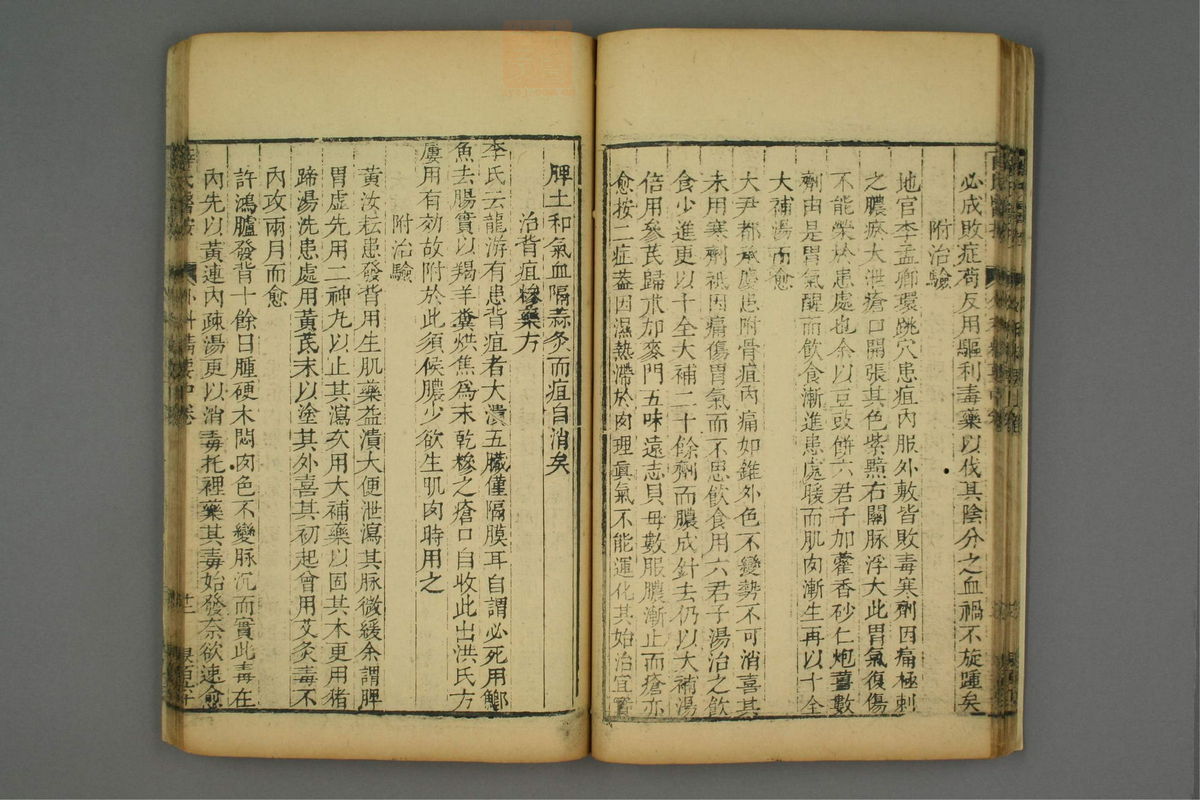 必成敗症苟反用驅利毒藥以伐其陰分之血禍不旋踵矣
附治驗
地官李孟卿環跳穴患疽內服外敷皆敗毒寒劑因痛極刺
之膿瘀大泄瘡口開張其色紫黯右關脉浮大此胃氣復傷
不能榮於患處也余以豆豉餅六君子加藿香砂仁炮薑數
劑由是胃氣醒而飲食漸進患處暖而肌肉漸生再以十全
大補湯而愈
大尹都承慶患附骨疽內痛如錐外色不變勢不可消喜其
未用寒劑祇因痛傷胃氣而不思飲食用六君子湯治之飲
食少進更以十全大補二十餘劑而膿成針去仍以大補湯
倍用參芪歸朮加麥門五味遠志貝母數服膿漸止而瘡亦
愈按二症蓋因濕熱滯於肉理眞氣不能運化其始治宜
脾土和氣血隔蒜灸而疽自消矣
治背疽糝藥方
李氏云龍游有患背疽者大潰五臟僅隔膜耳自謂必死用鯽
魚去腸實以羯羊糞烘焦為末乾糝之瘡口自收此出洪氏方
屢用有効故附於此須候膿少欲生肌肉時用之
附治驗
黃汝耘患發背用生肌藥益潰大便泄瀉其脉微緩余謂脾
胃虛先用二神丸以止其瀉次用大補藥以固其本更用猪
蹄湯洗患處用黃芪末以塗其外喜其初起曾用艾灸毒不
內攻兩月而愈
許鴻臚發背十餘日腫硬木悶肉色不變脉沉而實此毒在
內先以黃連內疎湯更以消毒托裡藥其毒始發奈欲速愈
薛氏醫按
外科精要中卷